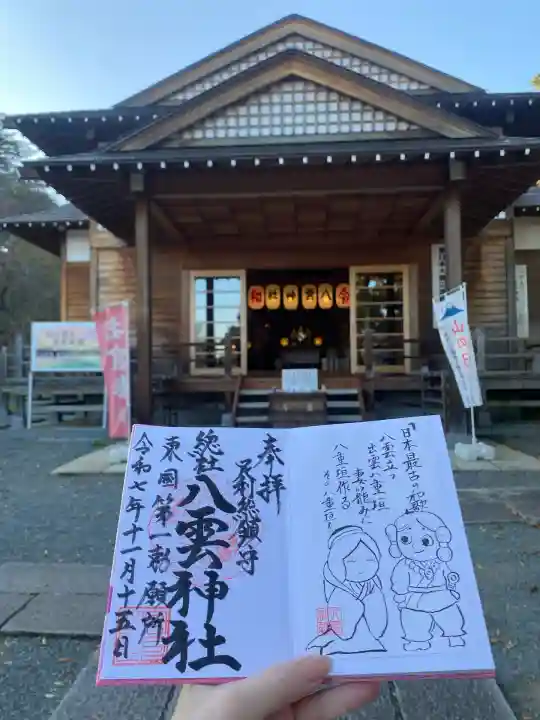 総社八雲神社
山の日
奉拝
足利総鎮守
総社
八雲神社
東國第一勅願所
令和七年十一月十五日
『日本最古の和歌』
八雲立つ
出雲八重垣
妻籠みに
八重垣作る
その八重垣を